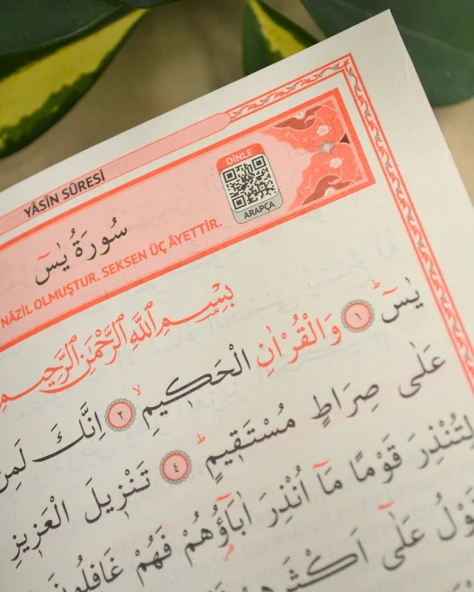 YÂSİN SÛRESİ
DİNLE
ARAPÇA
سُورَةُ يٰسٓ
NÂZİL OLMUŞTUR. SEKSEN ÜÇ ÂYETTİR.
بِسْمِ اللّٰهِ الرَّحْمٰنِ الرَّحٖيمِ
يٰسٓ ﴿١﴾ وَالْقُرْاٰنِ الْحَكٖيمِ ﴿٢﴾ اِنَّكَ لَمِنَ
عَلٰى صِرَاطٍ مُسْتَقٖيمٍ ﴿٤﴾ تَنْزٖيلَ الْعَزٖيزِ
لِتُنْذِرَ قَوْمًا مَٓا اُنْذِرَ اٰبَٓاؤُ۬هُمْ فَهُمْ غَافِلُونَ
عَلٰٓى اَكْثَرِهِمْ